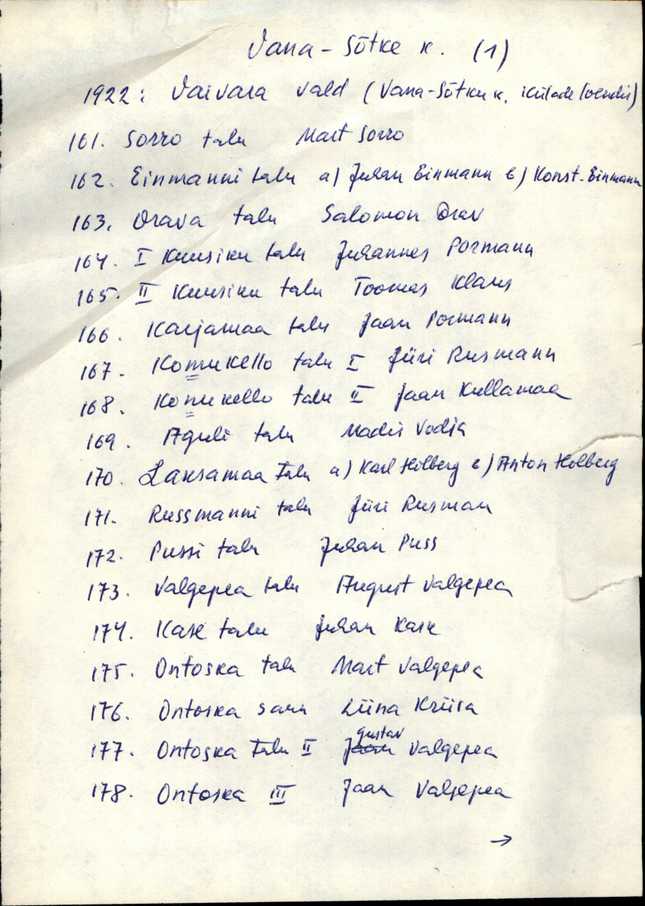 Vana-Sõtke k. (1)
1922: Vaivara vald (Vana-Sõtke k. külade loendis)
161. Sorro talu Mart Sorro
162. Einmanni talu a) Juhan Einmann b) Konst. Einmann
163. Orava talu Salomon Orav
164. I Kuusiku talu Juhannes Pormann
165. II Kuusiku talu Toomas Klaus
166. Karjamaa talu Jaan Pormann
167. Komukello talu I Jüri Rusmann
168. Komukello talu II Jaan Kullamaa
169. Aguli talu Madis Vodja
170. Lansamaa talu a) Karl Holberg b) Anton Holberg
171. Russmanni talu Jüri Rusman
172. Pussi talu Juhan Puss
173. Valgepea talu August Valgepea
174. Kase talu Juhan Kase
175. Ontoska talu Mart Valgepea
176. Ontoska saun Liina Kriisa
177. Ontoska talu II Jaan Gustav Valgepea
178. Ontoska III Jaan Valgepea
→